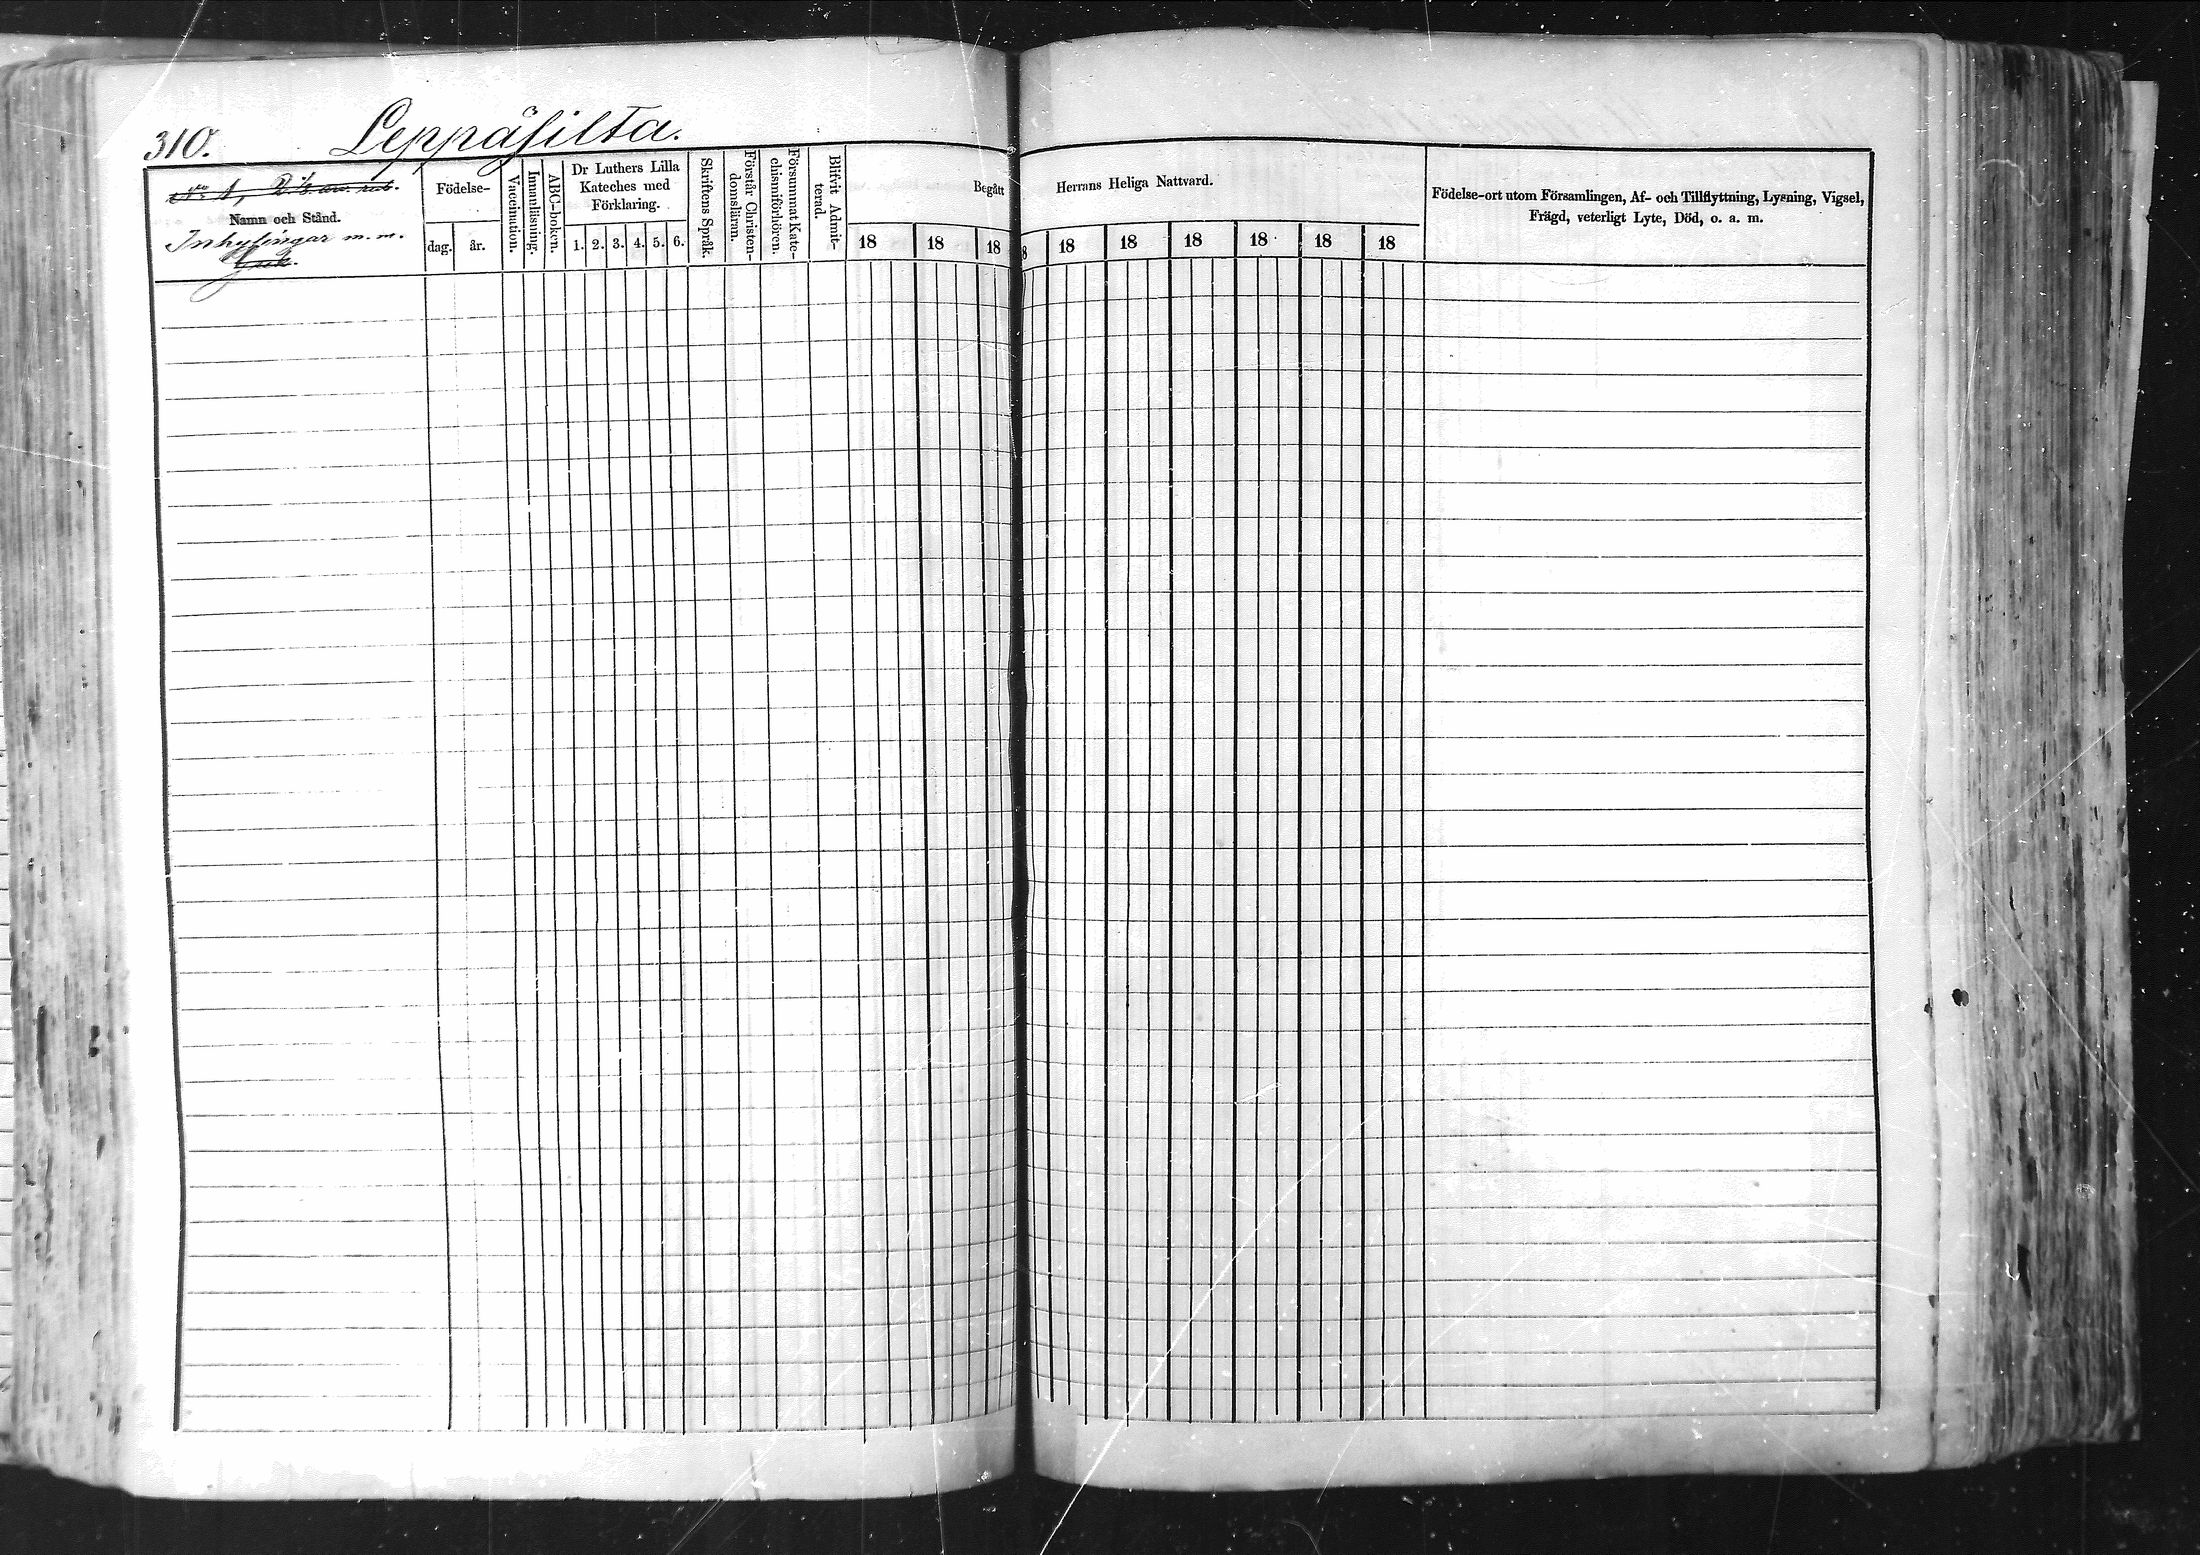 310. Leppäsilta.
Namn och Stånd.
Inhysingar m.m.
Födelse-
dag. år.
Vaccination.
Innanläsning.
ABC-boken.
Dr Luthers Lilla
Kateches med
Förklaring.
1. 2. 3. 4. 5. 6.
Skriftens Språk.
Förstår Christen-
domsläran.
Försummat Kate-
chismiförhören.
Blifvit Admit-
terad.
Begått Herrans Heliga Nattvard.
18 18 18 8 18 18 18 18 18 18
Födelse-ort utom Församlingen, Af- och Tillflyttning, Lysning, Vigsel,
Frägd, veterligt Lyte, Död, o. a. m.